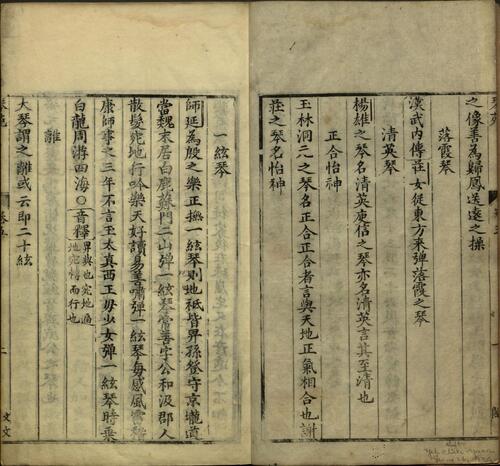 之像善為歸鳳送遠之操
落霞琴
漢武內傳莊女從東方來彈落霞之琴
清英琴
楊雄之琴名清英庾信之琴亦名清英言其至清也
正合怡神
玉林洞元之琴名正合正合者言與天地正氣相合也謝
莊之琴名怡神
一絃琴
師延為殷之樂正撫一絃琴則地祇皆昇孫登字
當魏末居白鹿蘇門二山彈一絃琴常善字公和汲郡人
散髮宛地行吟樂天好讀易善嘯彈一絃琴每感風雷嵇
康師事之三年不言王太真西王毋少女彈一絃琴時乗
白龍周游四海〇音釋
昇與也宛地為
地宛轉而行也
離
大琴謂之離或云即二十絃
卷五
二
文文